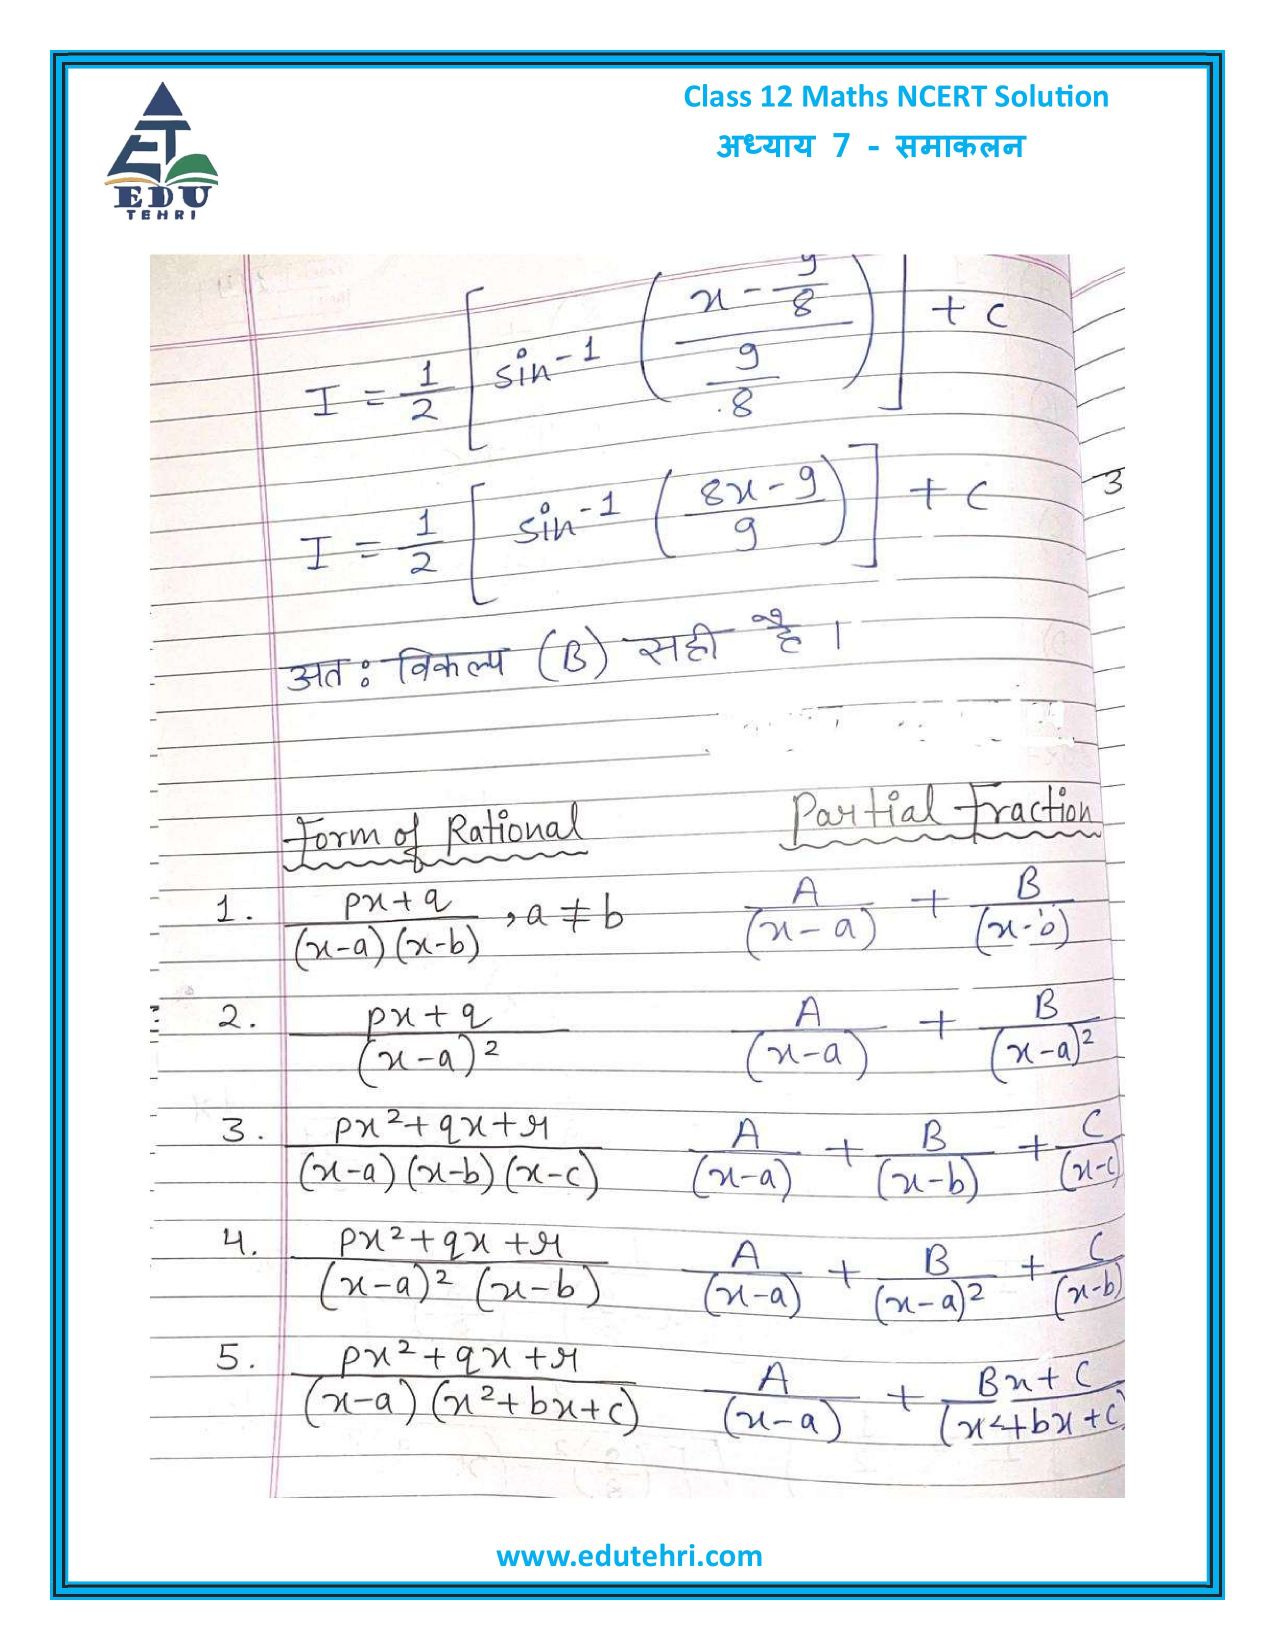 Class 12 Maths NCERT Solution
अध्याय 7 - समाकलन
EDU
TEHRI
I = 1/2 [ sin⁻¹ ( (x - 9/8) / (9/8) ) ] + c
3
I = 1/2 [ sin⁻¹ ( (8x - 9) / 9 ) ] + c
अत: विकल्प (B) सही है ।
Form of Rational Partial Fraction
1. (px + q) / ((x-a)(x-b)) , a ≠ b A/(x-a) + B/(x-b)
2. (px + q) / (x-a)² A/(x-a) + B/(x-a)²
3. (px² + qx + r) / ((x-a)(x-b)(x-c)) A/(x-a) + B/(x-b) + C/(x-c)
4. (px² + qx + r) / ((x-a)² (x-b)) A/(x-a) + B/(x-a)² + C/(x-b)
5. (px² + qx + r) / ((x-a)(x² + bx + c)) A/(x-a) + (Bx + C)/(x² + bx + c)
www.edutehri.com